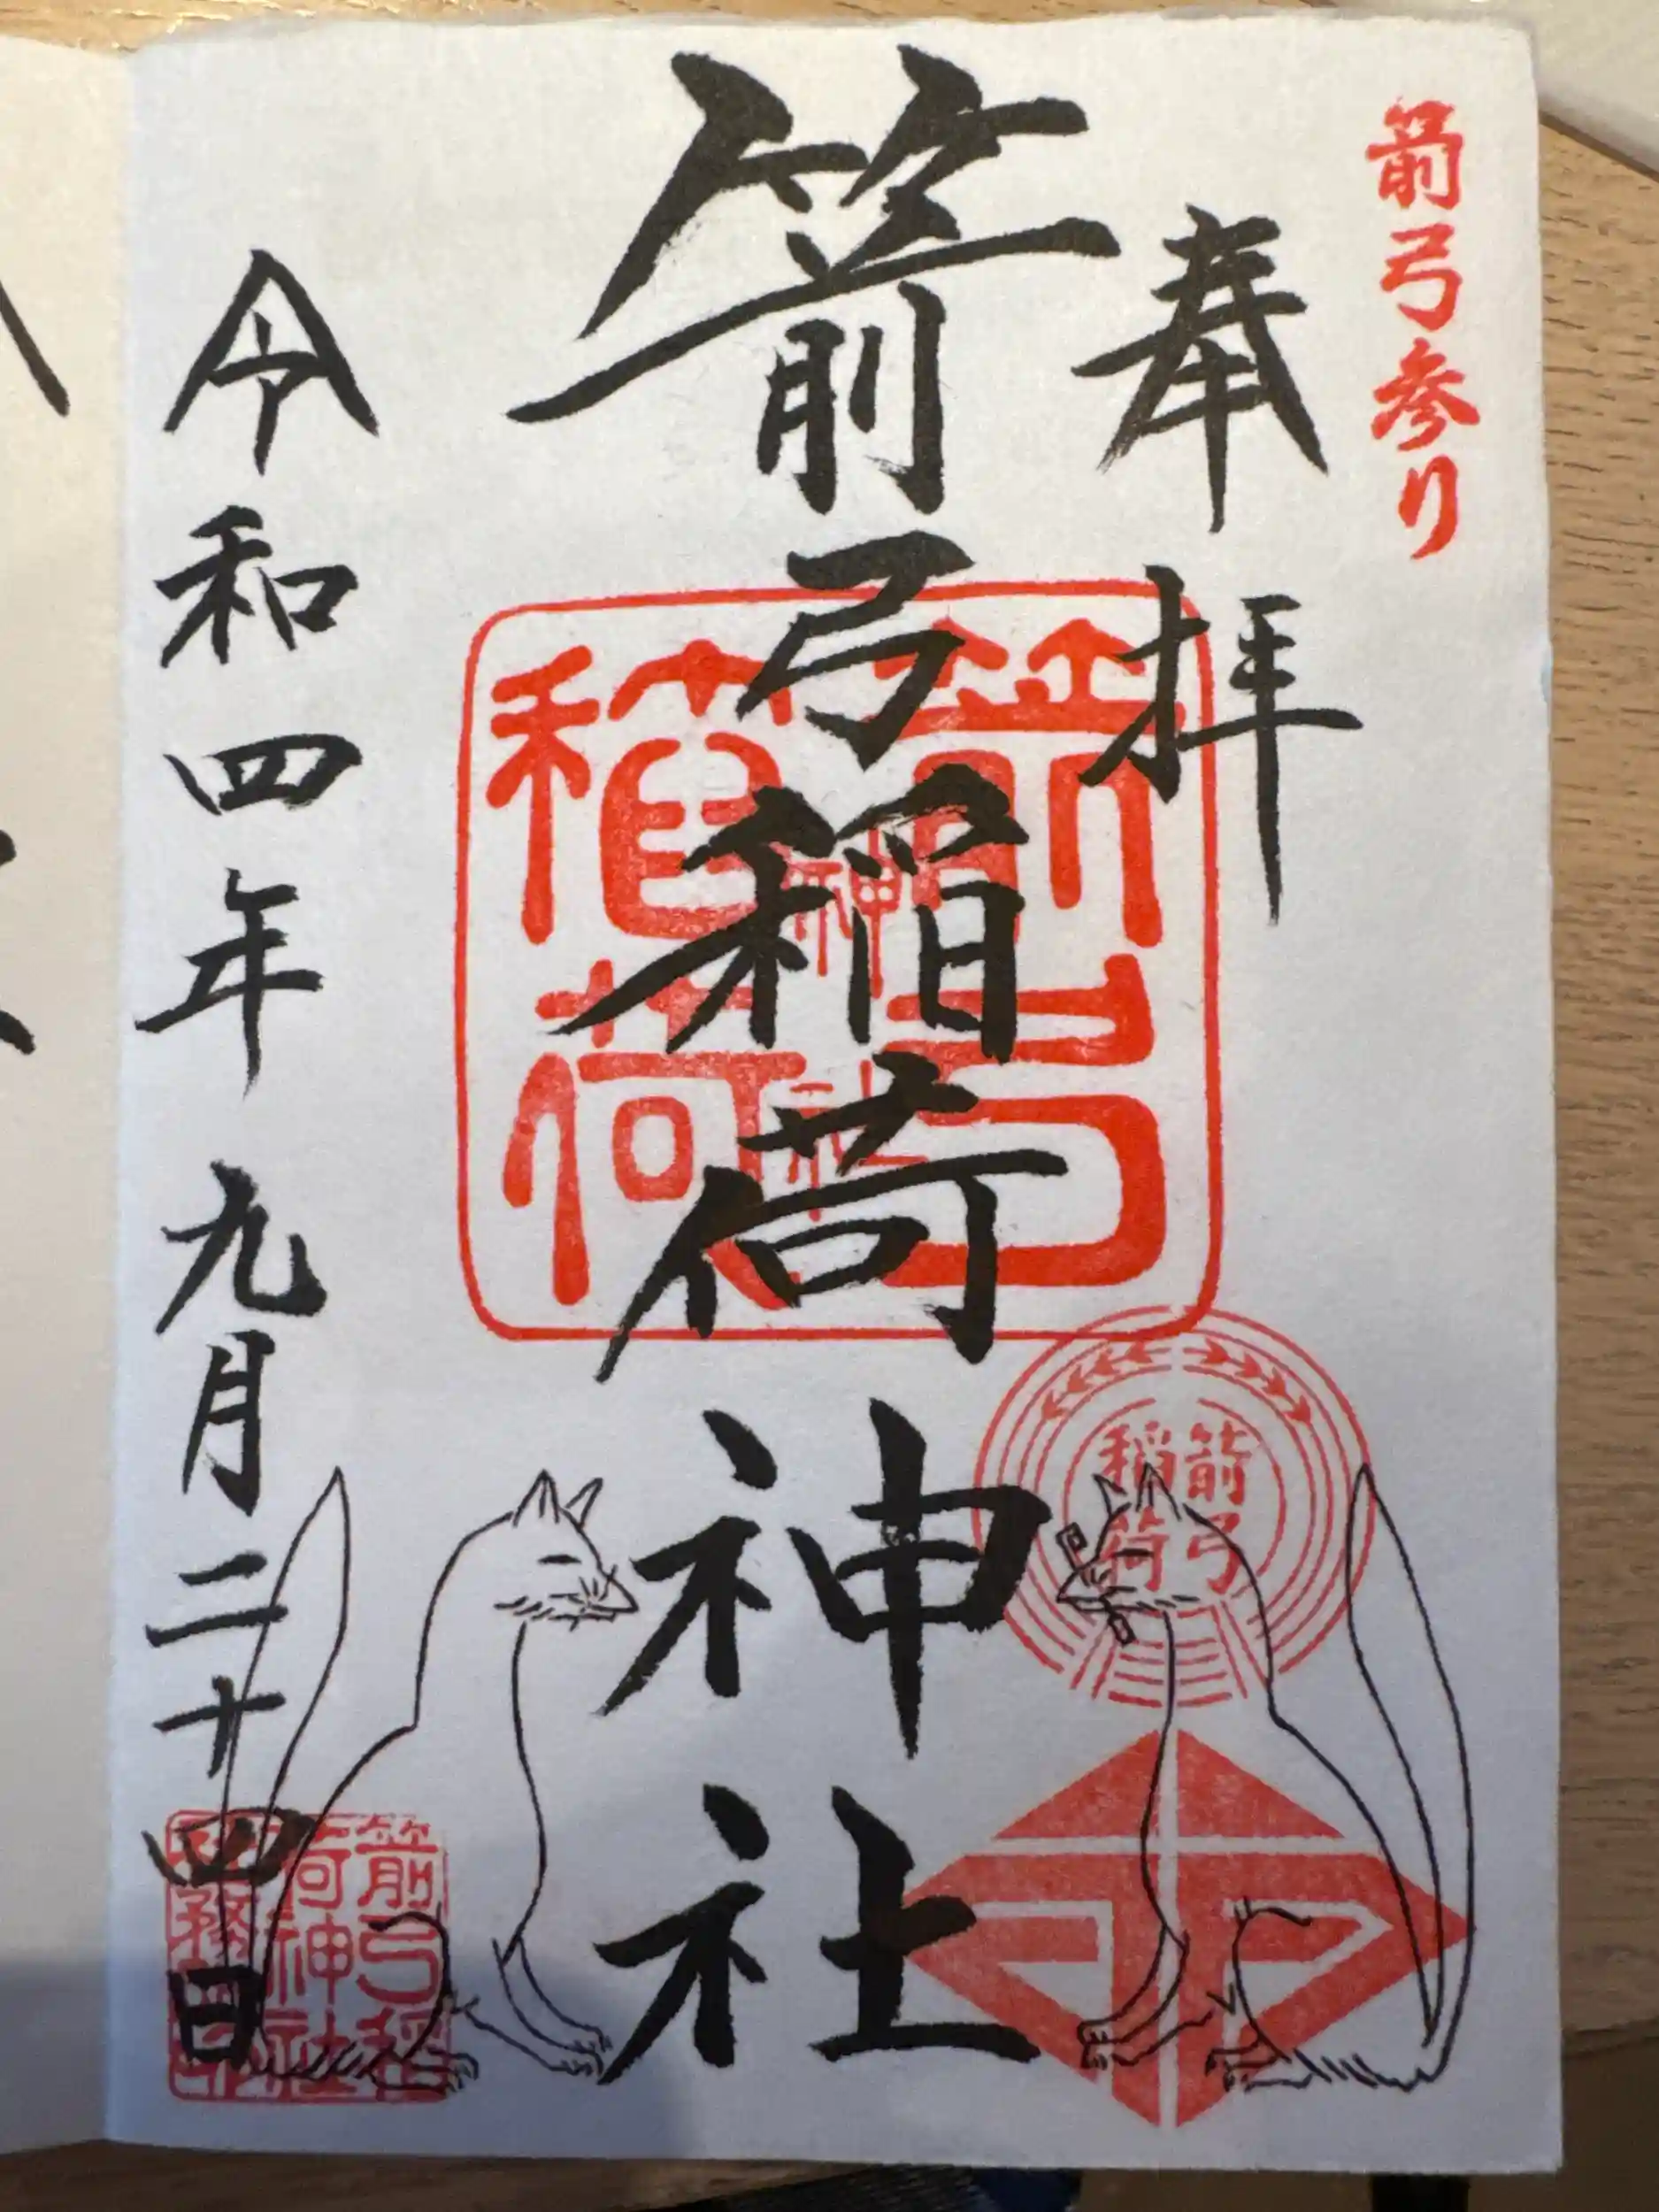 箭弓参り
奉拝
箭弓稲荷神社
令和四年九月二十四日
箭弓
稲荷
神社
箭弓
稲荷
箭弓稲
荷神社